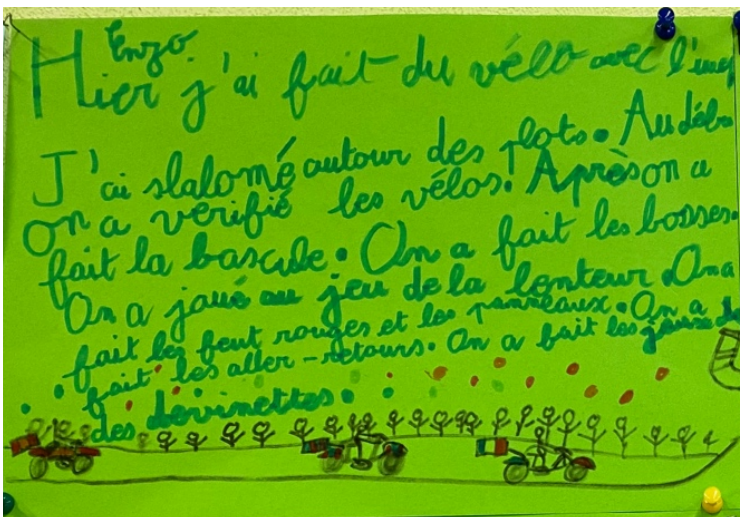 Enzo
Hier j'ai fait du vélo avec l'usep
J'ai slalomé autour des plots. Au déb
on a vérifié les vélos! Après on a
fait la bascule. On a fait les bosses.
On a joué au jeu de la lenteur. On a
fait les feut rouges et les panneaux. On a
fait les aller-retours. On a fait les jeux de
des devinettes.